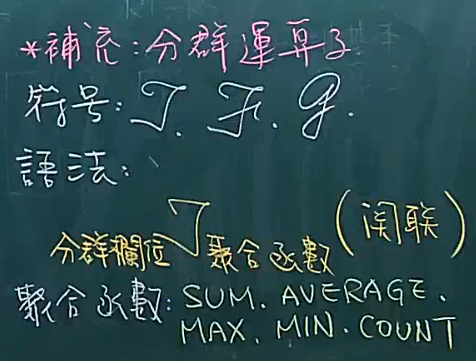 *補充:分群運算子
符号:ℐ. ℱ. 𝒢.
語法:
分群欄位 ℐ 聚合函數 (関联)
聚合函數: SUM. AVERAGE.
MAX. MIN. COUNT